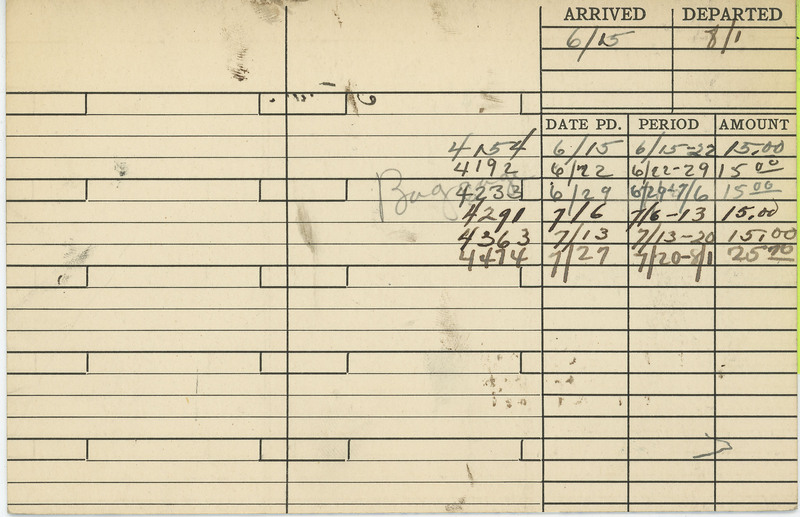 ARRIVED DEPARTED
6/15 8/1
DATE PD. PERIOD AMOUNT
4154 6/15 6/15-22 15.00
4192 6/22 6/22-29 15 00
4233 6/29 6/29-7/6 15 00
4291 7/6 7/6-13 15.00
4363 7/13 7/13-20 15.00
4474 7/27 7/20-8/1 25.70